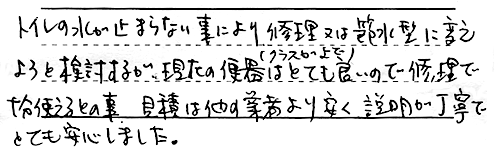 トイレの水が止まらない事により修理又は節水型に変え
ようと検討するが、現在の便器は(クラスが上で)とても良いので修理で
十分使えるとの事 見積は他の業者より安く説明が丁寧で
とても安心しました。